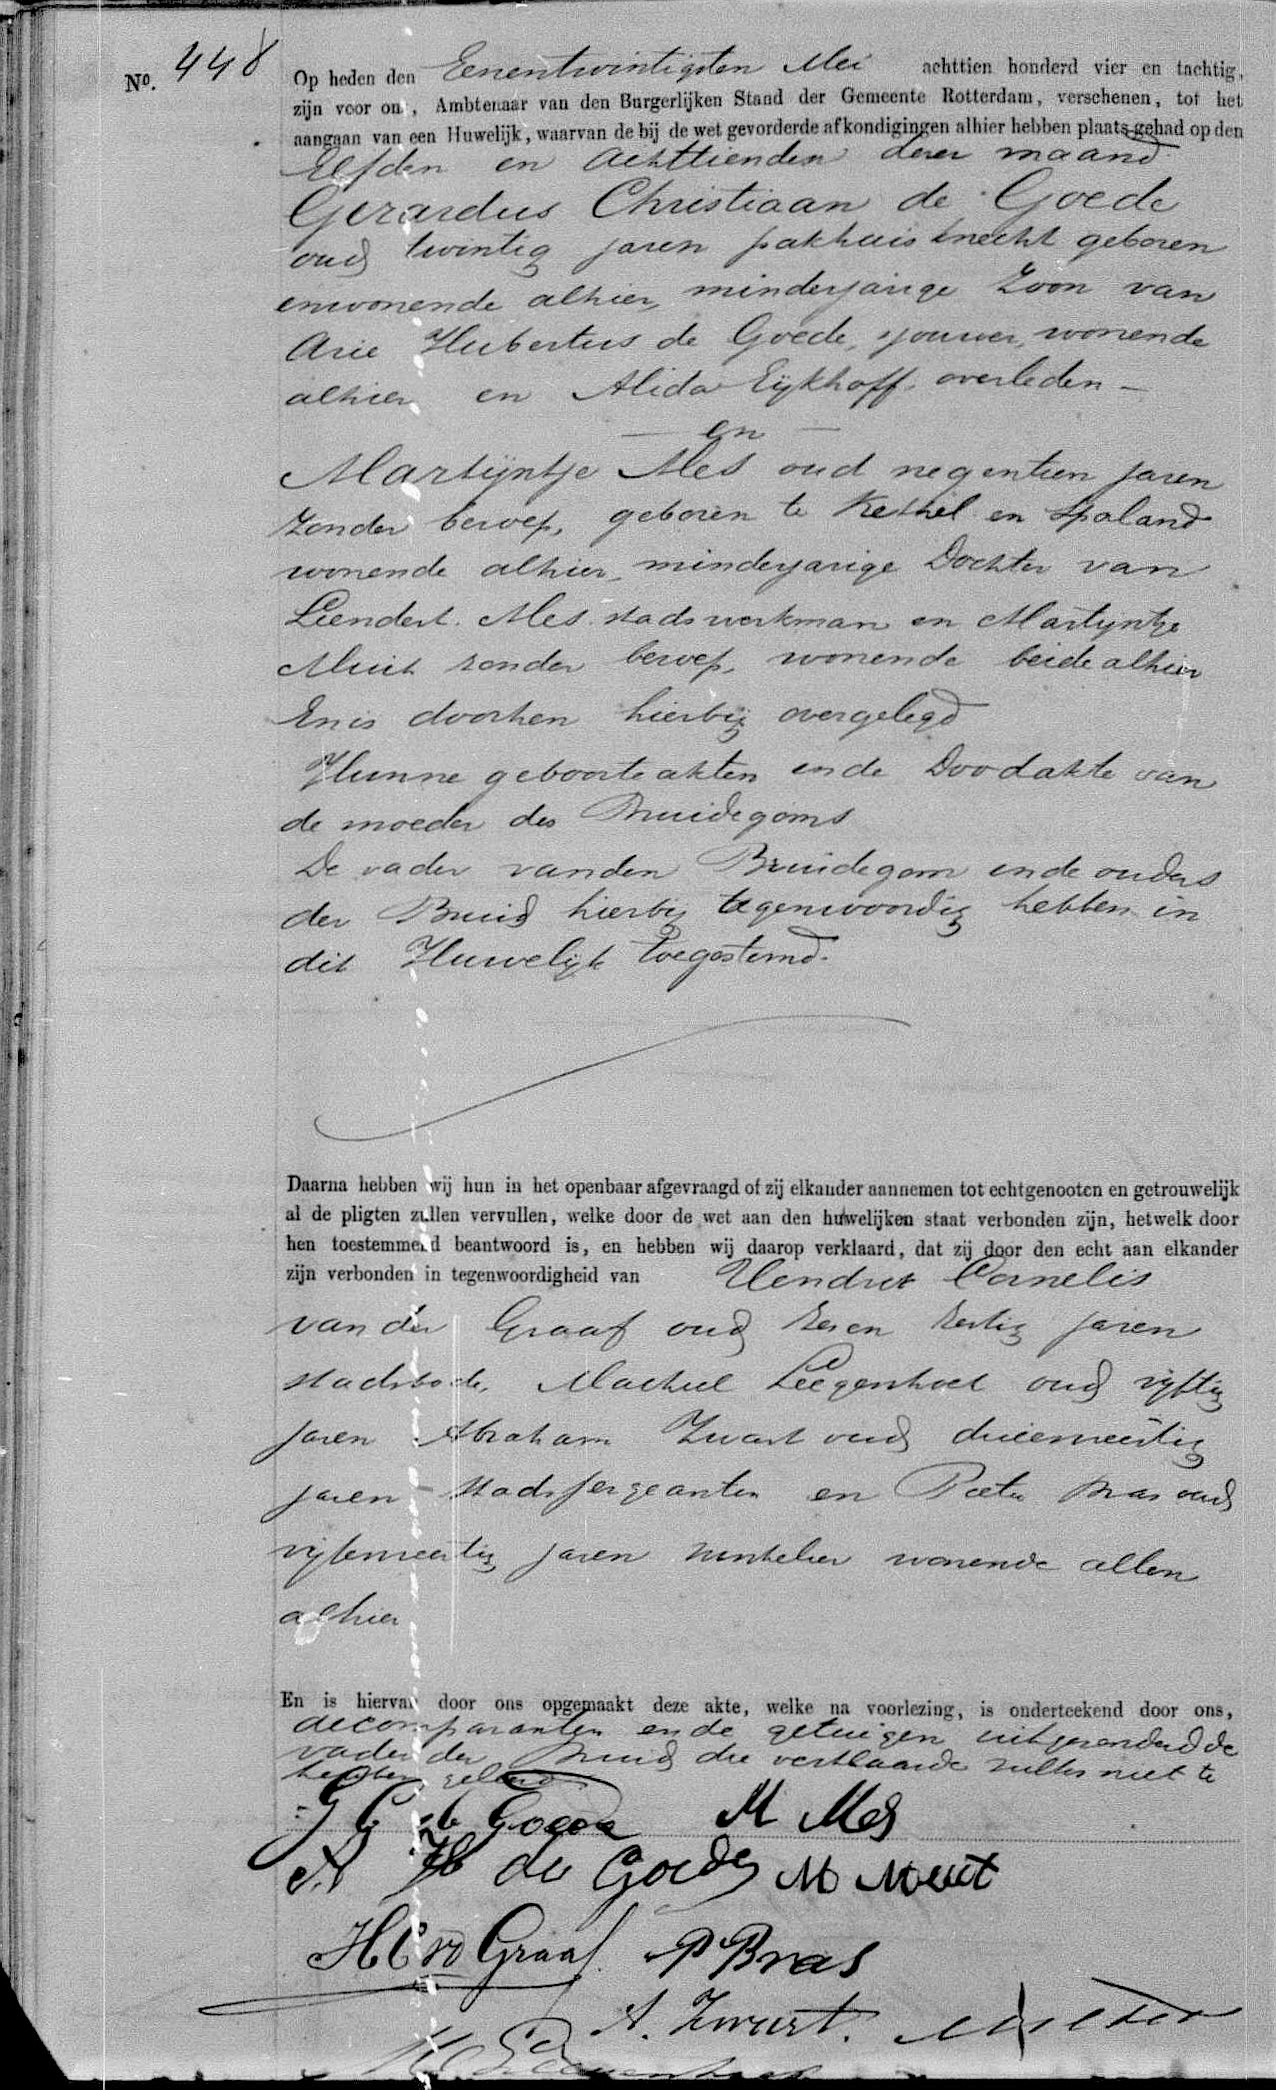 No. 448
Op heden den Eenentwintigsten Mei achttien honderd vier en tachtig,
zijn voor ons, Ambtenaar van den Burgerlijken Stand der Gemeente Rotterdam, verschenen, tot het
aangaan van een Huwelijk, waarvan de bij de wet gevorderde afkondigingen alhier hebben plaats gehad op den
Elfden en Achttienden dezer maand
Gerardus Christiaan de Goede
oud twintig jaren pakhuisknecht geboren
en wonende alhier, minderjarige Zoon van
Arie Hubertus de Goede, sjouwer, wonende
alhier en Alida Eijkhoff, overleden —
— en —
Martijntje Mes oud negentien jaren
zonder beroep, geboren te Kethel en Spaland
wonende alhier, minderjarige Dochter van
Leendert Mes stadswerkman en Martijntje
Muit zonder beroep, wonende beide alhier
En is door hen hierbij overgelegd
Hunne geboorteakten en de Doodakte van
de moeder des Bruidegoms
De vader van den Bruidegom en de ouders
der Bruid hierbij tegenwoordig hebben in
dit Huwelijk toegestemd.
Daarna hebben wij hun in het openbaar afgevraagd of zij elkander aannemen tot echtgenooten en getrouwelijk
al de pligten zullen vervullen, welke door de wet aan den huwelijken staat verbonden zijn, hetwelk door
hen toestemmend beantwoord is, en hebben wij daarop verklaard, dat zij door den echt aan elkander
zijn verbonden in tegenwoordigheid van Hendrik Cornelis
van der Graaf oud zes en zestig jaren
stadsbode, Machiel oud vijftig
jaren Abraham Zwart oud drieenveertig
jaren stadssergeanten en Pieter Bras oud
vijfenveertig jaren winkelier wonende allen
alhier
En is hiervan door ons opgemaakt deze akte, welke na voorlezing, is onderteekend door ons,
de comparanten en de getuigen uitgezonderd de
vader der Bruid die verklaarde zulks niet te
hebben geleerd
G C de Goede M Mes
A H de Goede M Muit
H C vd Graaf P Bras
A. Zwart.